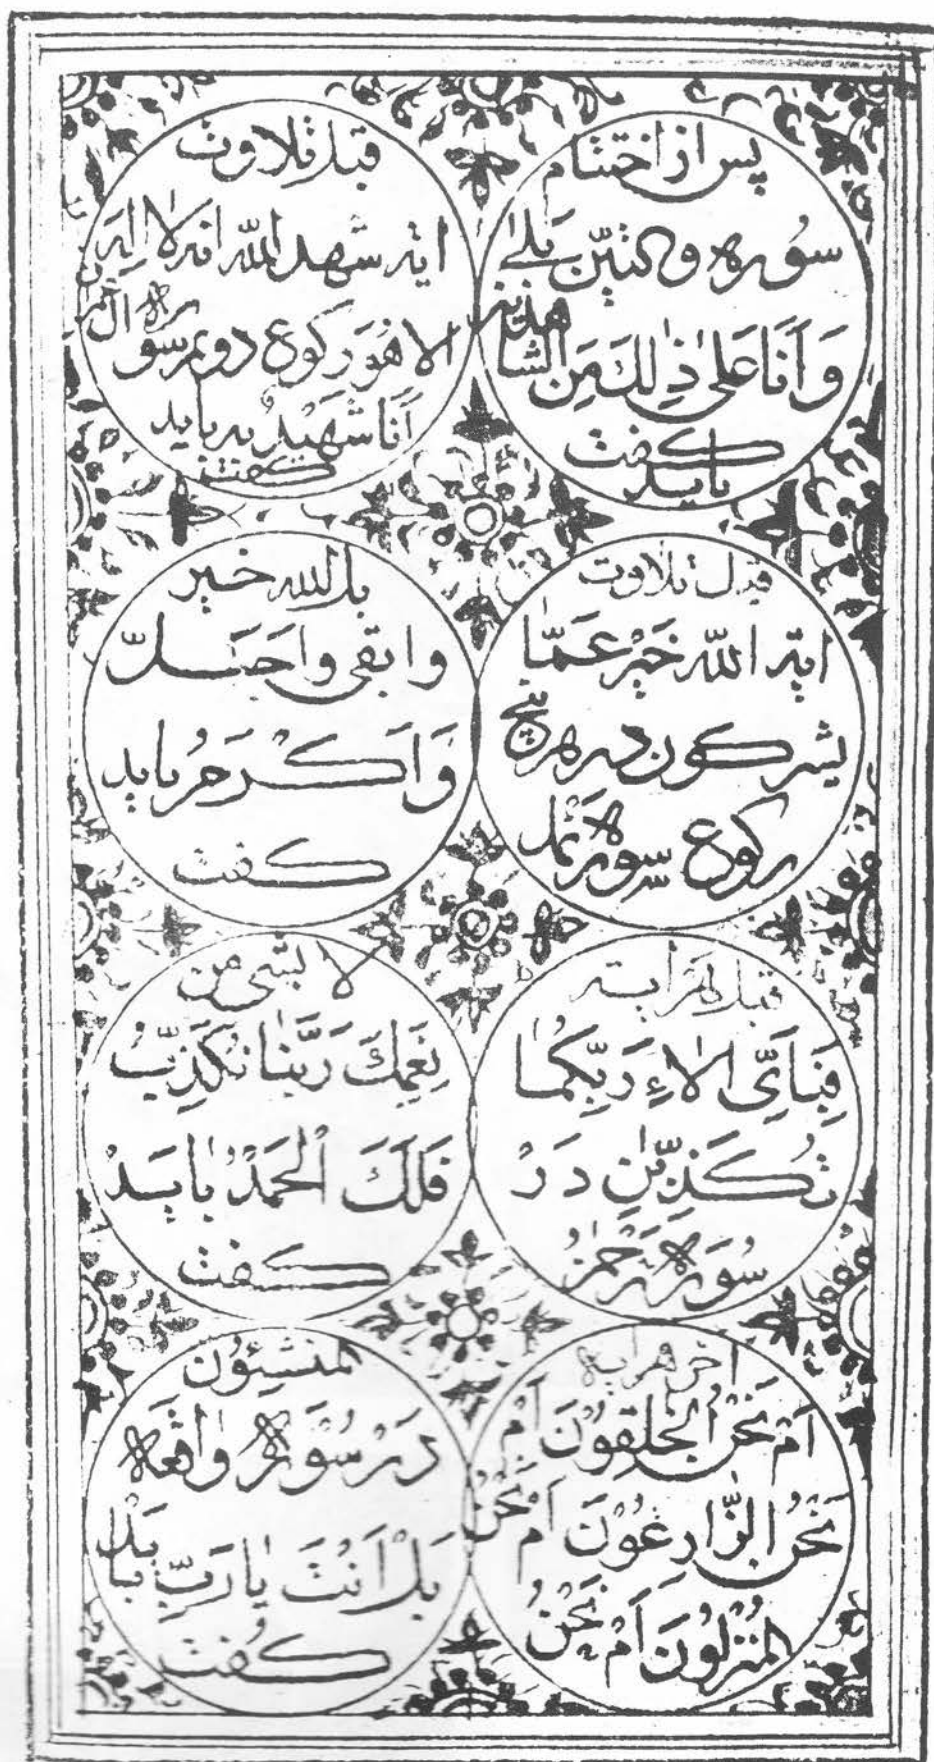 پس از اختتام
سُورہ والتین بَلٰے
وَ اَنَا عَلٰی ذٰلِكَ مِنَ الشاهدین
باید گفت
قبل تلاوت
ایة شهد الله انه لا اله
الا هو رکوع دویم سورہ ال عمران
اَنَا شَهِيْدٌ بہ باید
گفت
قبل تلاوت
ایة الله خَیْر عَمّا
یشرکون در پنج
رکوع سورہ نمل
بل الله خیر
و ابقی و اجَلّ
وَ اَکْرَمُ باید
گفت
قبل هر ایة
فَبِاَیِّ الٰاءِ رَبِّکُمَا
تُکَذِّبٰنِ دَرْ
سُورَہ رَحْمٰنُ
لا بشئ من
نِعَمِكَ رَبَّنَا نُکَذِّبُ
فَلَكَ الْحَمْدُ بَایَدْ
گفت
اخر هر ایة
اَمْ نَحْنُ الْخٰلِقُوْنَ اَمْ
نَحْنُ الزّٰارِعُوْنَ اَمْ نَحْنُ
المُنْزِلُوْنَ اَمْ نَحْنُ
المنشِئُون
دَرْ سُوْرَہ وَاقْعَہ
بَلْ اَنْتَ یَا رَبِّ بَایَدْ
گُفت